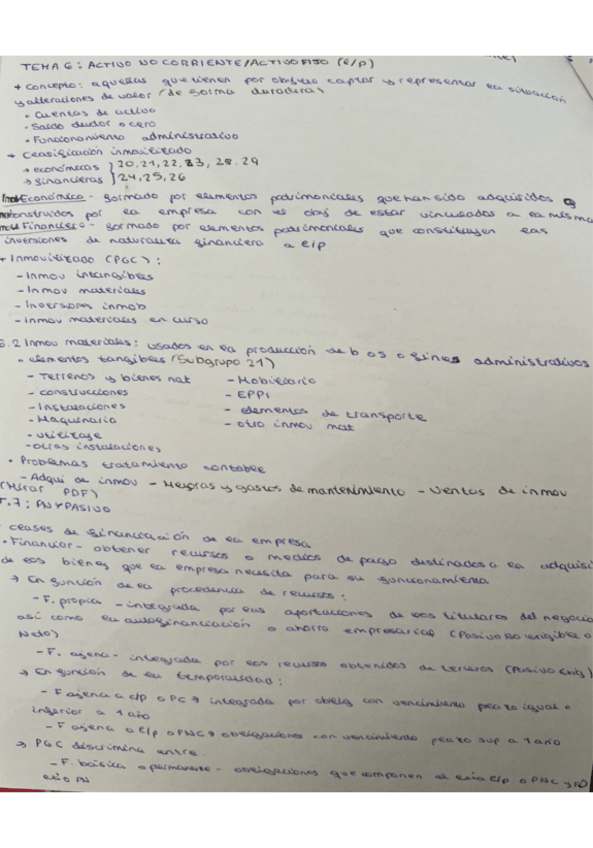 TEMA 6: ACTIVO NO CORRIENTE/ACTIVO FIJO (e/p)
+ Concepto: aquellas que tienen por objetivo captar y representar la situación
y alteraciones de valor (de forma duradera)
• Cuentas de activo
• Saldo deudor o cero
• Funcionamiento administrativo
+ Clasificación inmovilizado
→ económicas } 20, 21, 22, 23, 28, 29
→ financieras } 24, 25, 26
Económico - formado por elementos patrimoniales que han sido adquiridos o
construidos por la empresa con el obj de estar vinculados a la misma
Financiero - formado por elementos patrimoniales que constituyen las
inversiones de naturaleza financiera a l/p
+ Inmovilizado (PGC):
- Inmov intangibles
- Inmov materiales
- Inversiones inmob
- Inmov materiales en curso
6.2 Inmov materiales: usados en la producción de b o s o fines administrativos
• elementos tangibles (Subgrupo 21)
- Terrenos y bienes nat - Mobiliario
- construcciones - EPPI
- Instalaciones - elementos de transporte
- Maquinaria - otro inmov mat
- utillaje
- otras instalaciones
• Problemas tratamiento contable
- Adqui de inmov - Mejoras y gastos de mantenimiento - Ventas de inmov
(Mirar PDF)
T.7: PN Y PASIVO
clases de financiación de la empresa
• Financiar - obtener recursos o medios de pago destinados a la adquisi
de los bienes que la empresa necesita para su funcionamiento
→ En función de la procedencia de recursos:
- F. propia - integrada por las aportaciones de los titulares del negocio
así como la autofinanciación o ahorro empresarial (Pasivo No exigible o
Neto)
- F. ajena - integrada por los recursos obtenidos de terceros (Pasivo Exig)
→ En función de la temporalidad:
- F ajena a c/p o PC → integrada por oblig con vencimiento plazo igual o
inferior a 1 año
- F ajena a l/p o PNC → obligaciones con vencimiento plazo sup a 1 año
→ PGC discrimina entre
- F. básica o permanente - obligaciones que componen el l/p o PNC y
PN